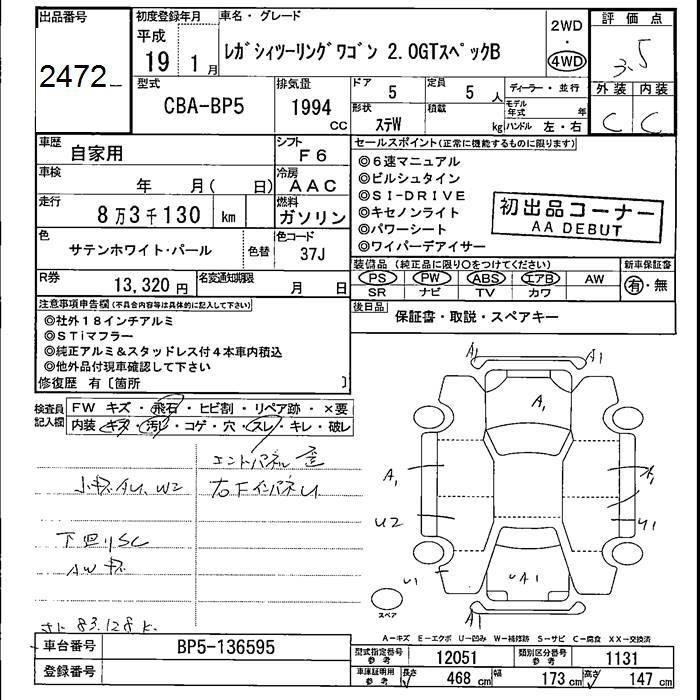 出品番号 初度登録年月 車名・グレード 評価点
2472 平成 19 1月 レガシィツーリングワゴン 2.0GTスペックB 2WD・4WD 3.5
外装 内装
C C
型式 排気量 ドア 定員 ディーラー・並行
CBA-BP5 1994 CC 5 5人 モデル年式 年
形状 ステW 積載 kg ハンドル 左・右
車歴 自家用 シフト F6 セールスポイント(正常に機能するものに限ります)
車検 年 月( 日) 冷房 AAC
走行 8万3千130 km 燃料 ガソリン
色 サテンホワイト・パール 色替 色コード 37J
R券 13,320円 名変通知期限 月 日
◎6速マニュアル
◎ビルシュタイン
◎SI-DRIVE
◎キセノンライト
◎パワーシート
◎ワイパーデアイサー
初出品コーナー
AA DEBUT
装備品(純正品に限り○をつけてください) 新車保証書
PS PW ABS エアB AW 有・無
SR ナビ TV カワ
後日品 保証書・取説・スペアキー
注意事項申告欄(不具合内容等は具体的に記入して下さい)
◎社外18インチアルミ
◎STiマフラー
◎純正アルミ&スタッドレス付4本車内積込
◎他外品付現車確認して下さい
修復歴 有〔箇所 〕
検査員記入欄 FW キズ・飛石・ヒビ割・リペア跡・×要
内装・キズ・汚レ・コゲ・穴・スレ・キレ・破レ
エンドパネル 歪
小キズ AU、W2 右下インパネU
下廻リSC
AWキズ
83,128 k
A1 A1
A1
A1
U2 U1
U1 UA1
A1
スペア
A-キズ E-エクボ U-凹み W-補修跡 S-サビ C-腐食 XX-交換済
車台番号 BP5-136595
登録番号
型式指定番号 参考 12051 類別区分番号 参考 1131
車庫証明用 参考 長さ 468 cm 幅 173 cm 高さ 147 cm